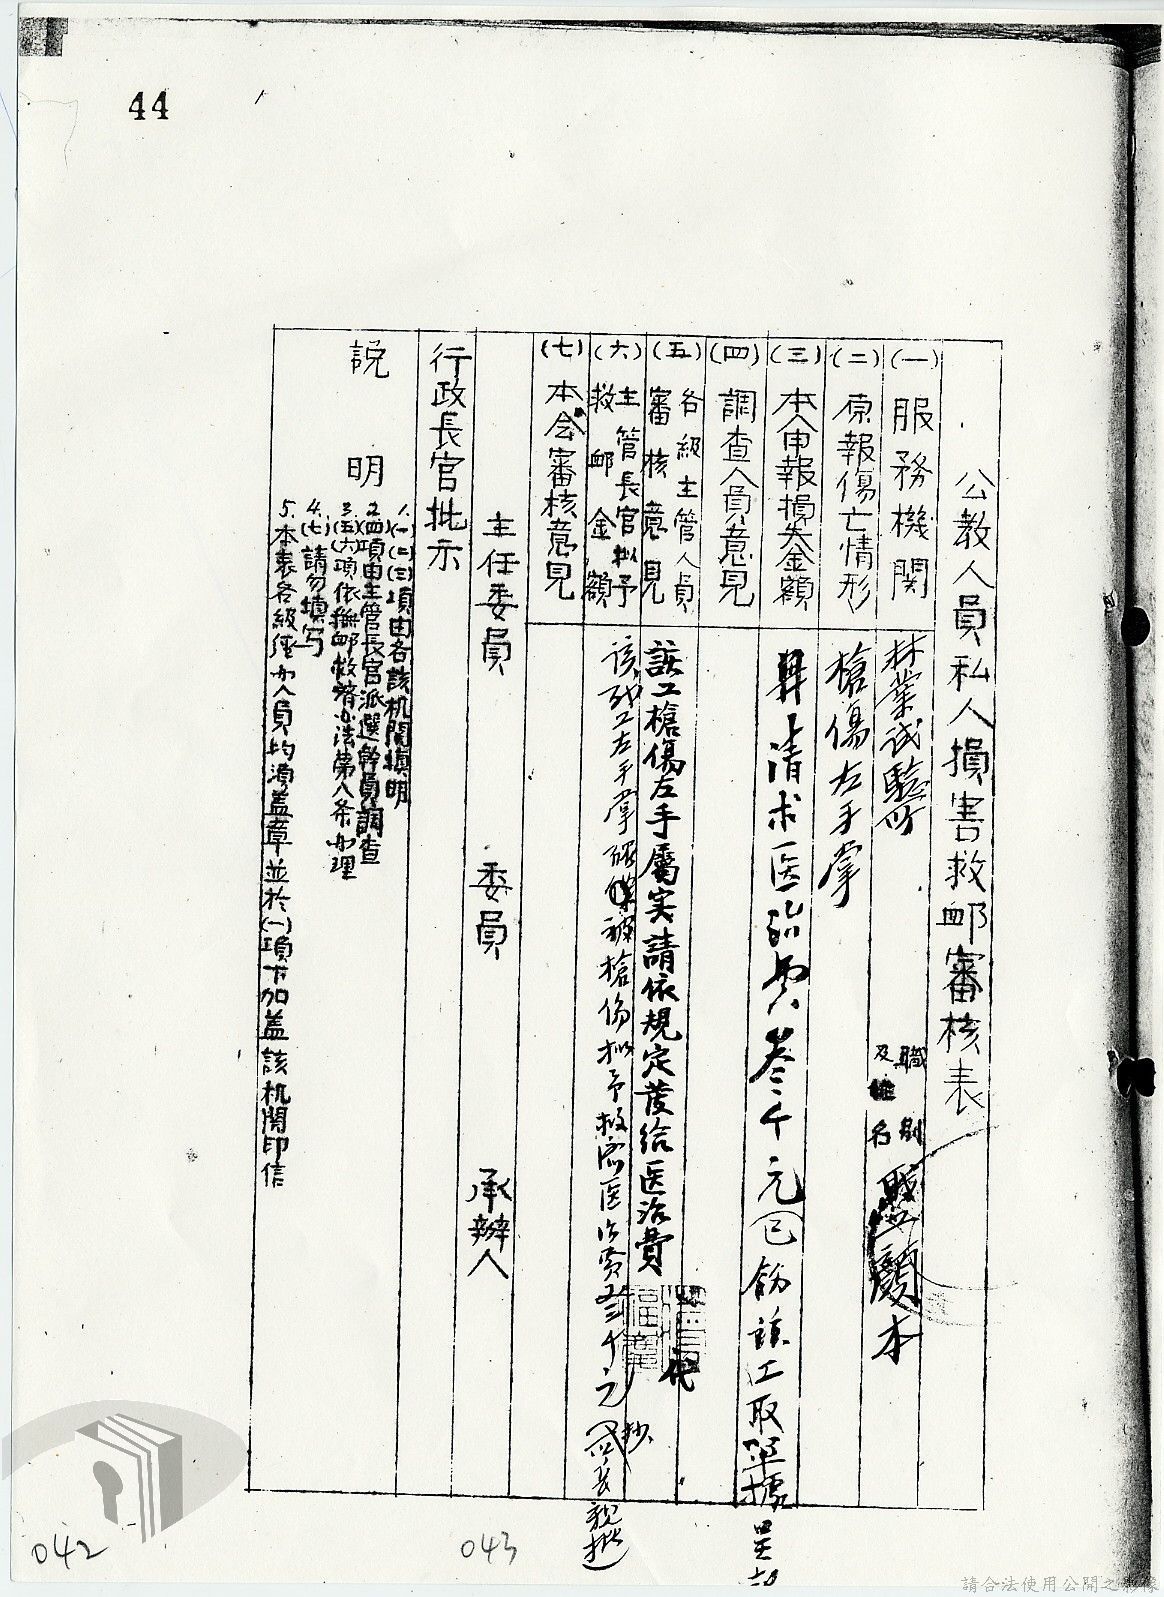 44
公教人員私人損害救卹審核表
(一)服務機関
林業試驗所
職別
及姓名
顏本
(二)原報傷亡情形
槍傷左手掌
(三)本人申報損失金額
請求医治費叁千元已飭該工取単據呈
(四)調查人員意見
(五)各級主管人員
審核意見
該工槍傷左手屬实請依規定發給医治費
代
(六)主管長官拟予
救卹金額
該工左手掌被槍傷拟予救濟医治費三千元
(七)本会審核意見
主任委員 委員 承辦人
行政長官批示
說明
1.(一)(二)(三)項由各該机関填明
2.(四)項由主管長官派選幹員調查
3.(五)(六)項依撫卹救濟办法第八条办理
4.(七)請勿填写
5.本表各級經办人員均須盖章並於(一)項下加盖該机関印信
042
043
請合法使用公開之影像